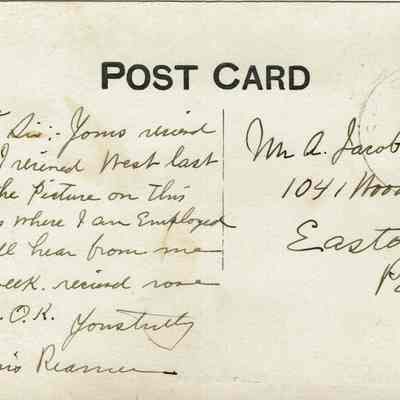 POST CARD
Sir:- Yours recievd
I recieved West last
the Picture on this
s where I am Employed
ll hear from me
eek. recievd
O.K. Yourstrully
Reamer
Mr A. Jacob
1041 Wood
Easto
P